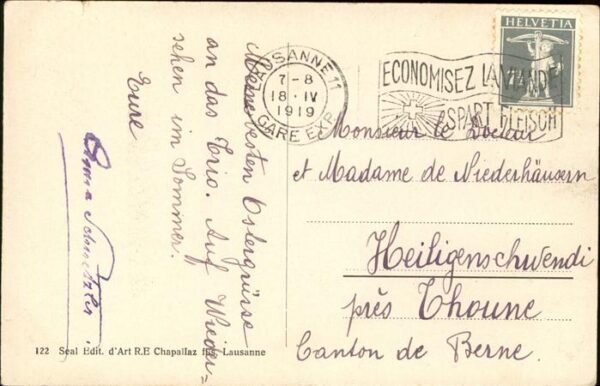 HELVETIA
LAUSANNE 11
7-8
18·IV
1919
GARE EXP.
ECONOMISEZ LA VIANDE
SPART FLEISCH
Monsieur le Docteur
et Madame de Niederhäusern
Heiligenschwendi
près Thoune
Canton de Berne.
Meine besten Ostergrüsse
an das Trio. Auf Wieder=
sehen im Sommer.
Eure
122 Seal Edit. d'Art R.E Chapallaz Lausanne